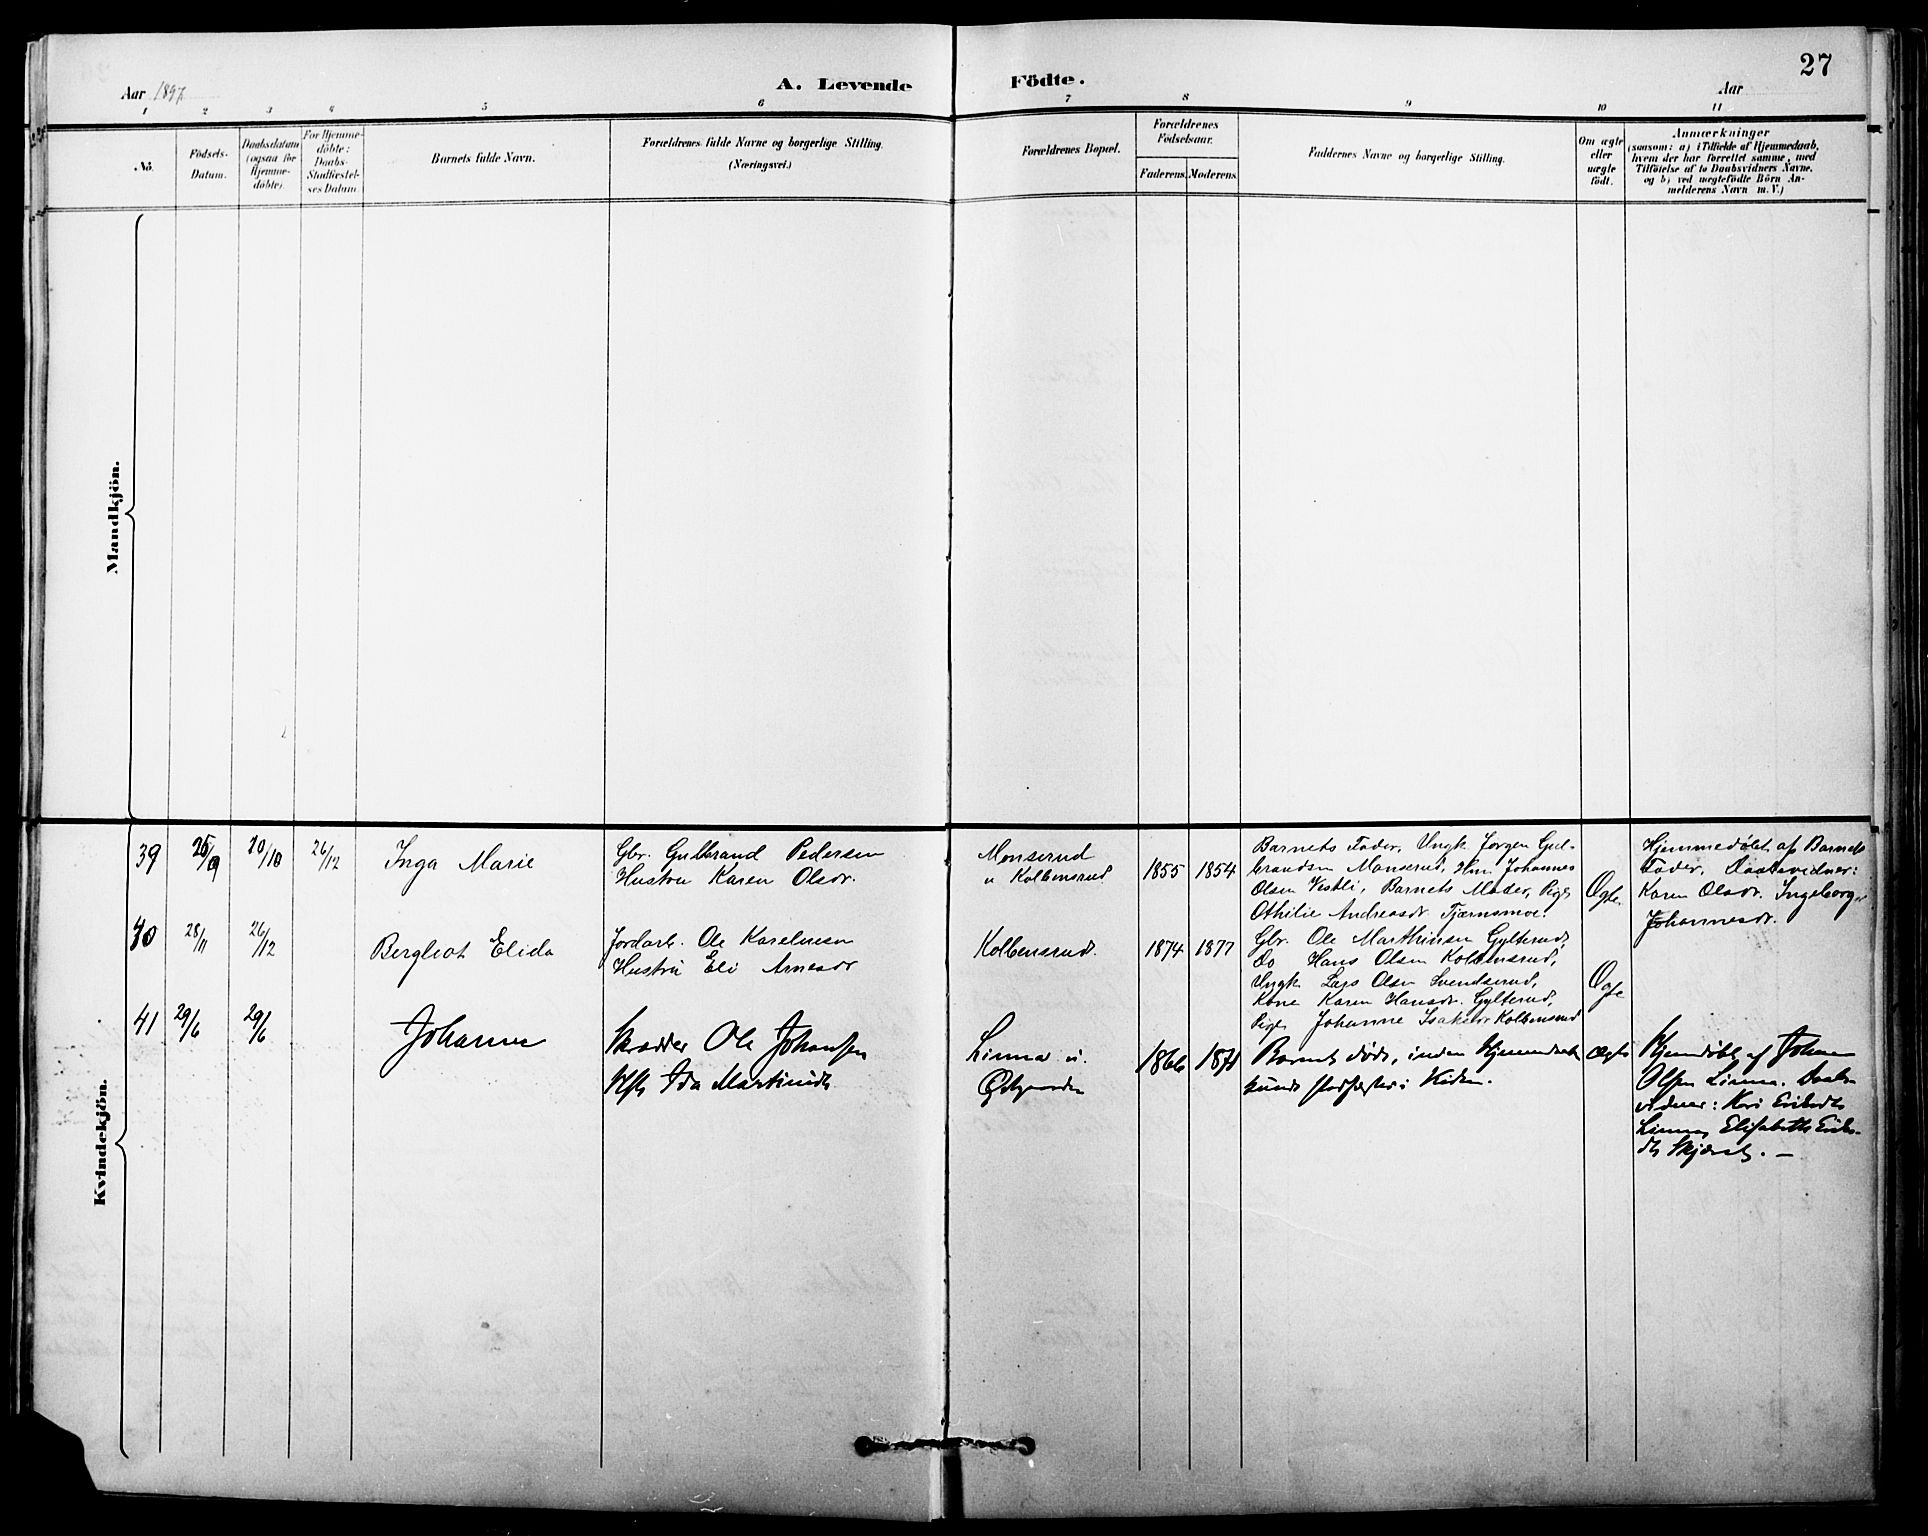 27
Aar 1897
A. Levende Födte.
Aar
1 2 3 4 5 6 7 8 9 10 11
No.
Födsels-
Datum.
Daabsdatum
(ogsaa for
Hjemme-
döbte).
For Hjemme-
döbte:
Daabs-
Stadfæstel-
ses Datum.
Barnets fulde Navn.
Forældrenes fulde Navne og borgerlige Stilling.
(Næringsvei.)
Forældrenes Bopæl.
Forældrenes
Födselsaar.
Faderens. Moderens.
Faddernes Navne og borgerlige Stilling.
Om ægte
eller
uægte
födt.
Anmærkninger
(saasom: a) i Tilfælde af Hjemmedaab,
hvem der har forrettet samme, med
Tilföielse af to Daabsvidners Navne,
og b) ved uægtefödte Börn An-
melderens Navn m. V.)
Mandkjön.
Kvindekjön.
39
/9
20/10
26/12
Inga Marie
Gbr. Gulbrand Pedersen
Hustru Karen Olsdr.
Monserud
u Kolbensrud
1855
1854
Barnets Fader, Ungk. Jørgen Gul-
brandsen Monserud, Hm. Johannes
Olsen Vestli, Barnets Moder, Pige
Othilie Andreasdr. Tjærnsmoe.
Ægte.
Hjemmedøbt af Barnets
Fader, Daabsvidner:
Karen Olsdr. Ingeborg
Johannesdr.
40
28/11
26/12
Bergliot Elida
Jordarb. Ole Karelius
Hustru Eli Arnesdr
Kolbensrud.
1874
1877
Gbr. Ole Marthinsen Gylterud,
Do Hans Olsen Kolbensrud,
Ungk Lars Olsen Svendserud,
Kone Karen Hansdr. Gylterud,
Pige Johanne Isaksdr Kolbensrud
Ægte
41
29/6
29/6
Johanne
Skrædder Ole Johansen
Hst. Ida Martinidt
Linna u.
Østgaarden
1866
Barnet døde, inden Hjemmedaaben
kunde stadfæstes i Kirken.
ægte
Hjemdøbt af Johan
Olsen Linna. Daabs-
vidner: Kari Eriksdt
Linna, Elisabeth Eriks-
dt Skjærst. —